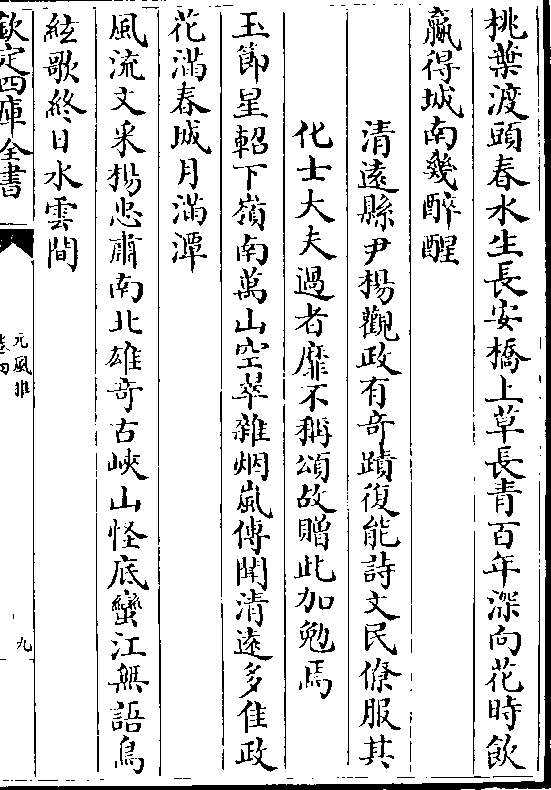 桃葉渡頭春水生長安橋上草長青百年深向花時飲
贏得城南幾醉醒
清遠縣尹楊觀政有奇蹟復能詩文民傜服其
化士大夫過者靡不稱頌故贈此加勉焉
玉節星軺下嶺南萬山空翠雜烟嵐傳聞清遠多佳政
花滿春城月滿潭
風流文采楊忠肅南北雄奇古峽山怪底蠻江無語鳥
絃歌終日水雲間
欽定四庫全書
元風雅
九